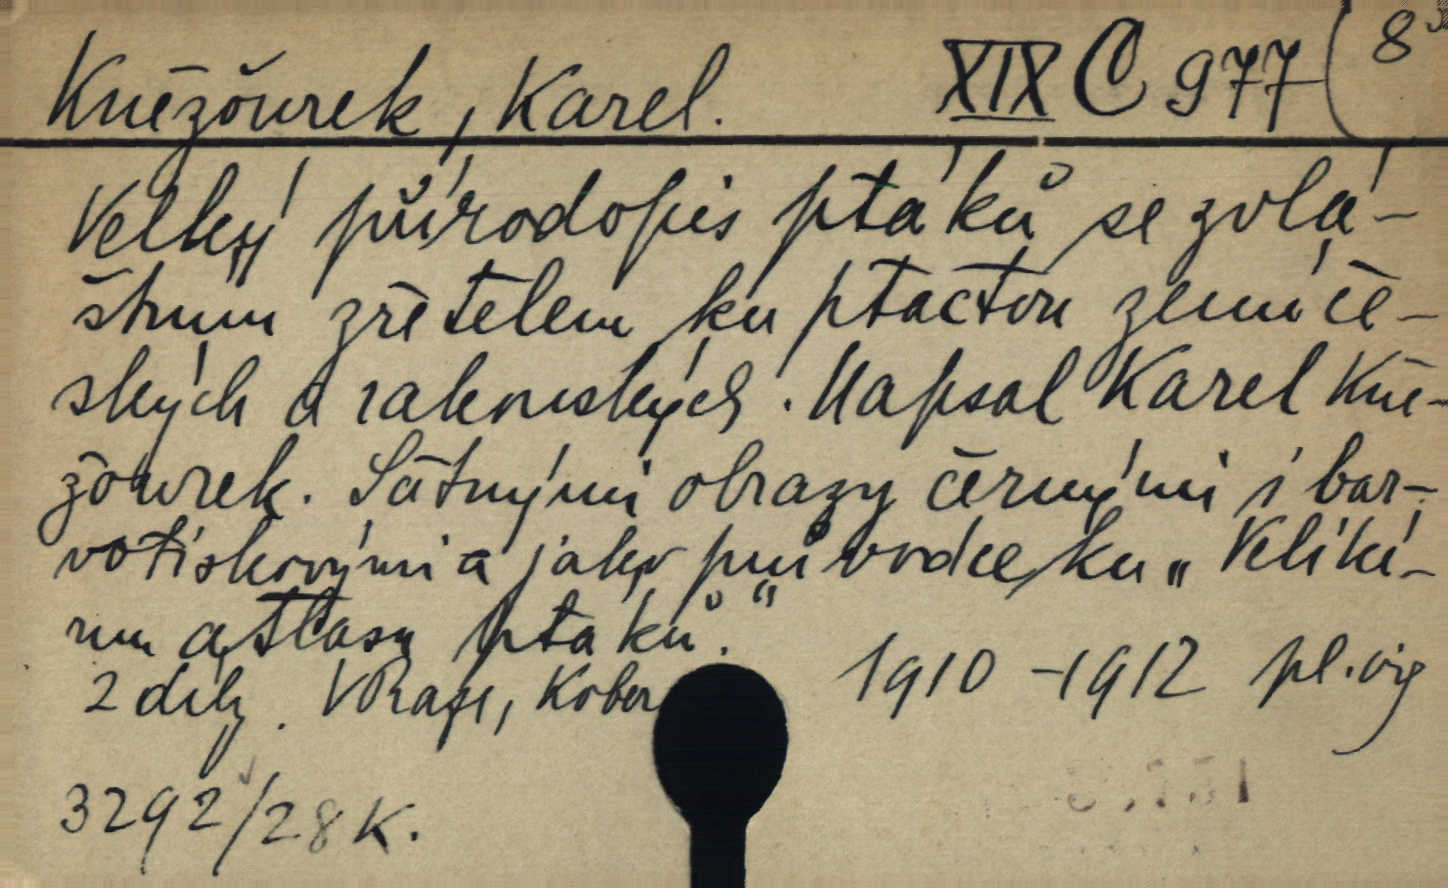 Kněžourek, Karel. XIX C 977 (8°
Velký přírodopis ptáků se zvlá-
štním zřetelem ku ptactvu zemí če-
ských a rakouských. Napsal Karel Kně-
žourek. S četnými obrazy černými i bar-
votiskovými a jako průvodce ku „Veliké-
mu atlasu ptáků“.
2 díly. V Praze, Kober 1910-1912 pl. vig
3292/28 K.